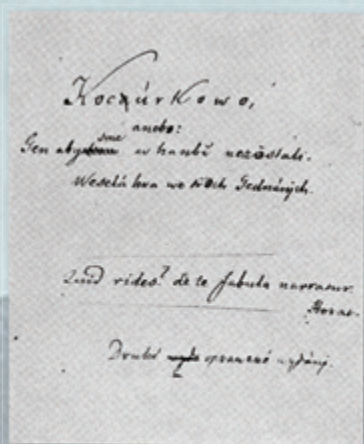 Kocúrkowo,
anebo:
Gen aby sme w hanbě nezôstali.
Weselá hra we troch Gednáných.
Quid rides? de te fabula narratur.
Horat.
Druhé oprawené wydáni.